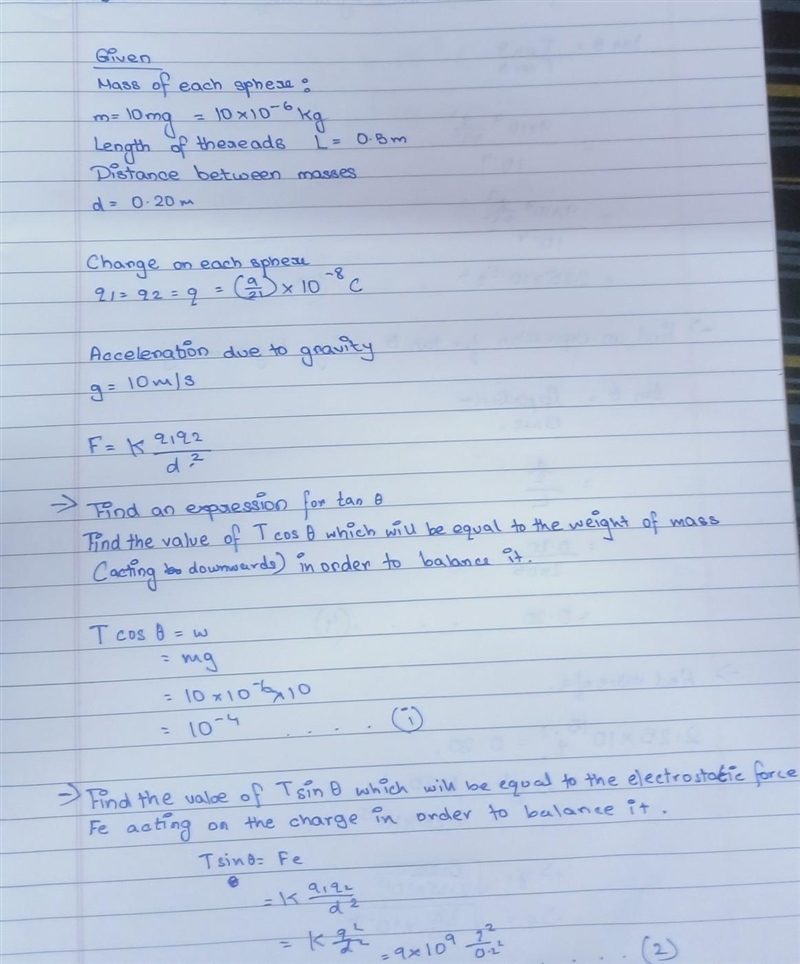 Given
Mass of each sphere :
m = 10mg = 10 × 10⁻⁶ kg
Length of thereads L = 0.5m
Distance between masses
d = 0.20 m
Change on each sphere
q1 = q2 = q = (a/21) × 10⁻⁸ C
Acceleration due to gravity
g = 10 m/s
F = K q1q2/d²
→ Find an expression for tan θ
Find the value of T cos θ which will be equal to the weight of mass
(acting downwards) in order to balance it.
T cos θ = w
= mg
= 10 × 10⁻⁶ × 10
= 10⁻⁴ . . . . (i)
→ Find the value of T sin θ which will be equal to the electrostatic force
Fe acting on the charge in order to balance it.
T sin θ = Fe
= K q1q2/d²
= K q²/d² = 9 × 10⁹ q²/0.2² . . . . (2)